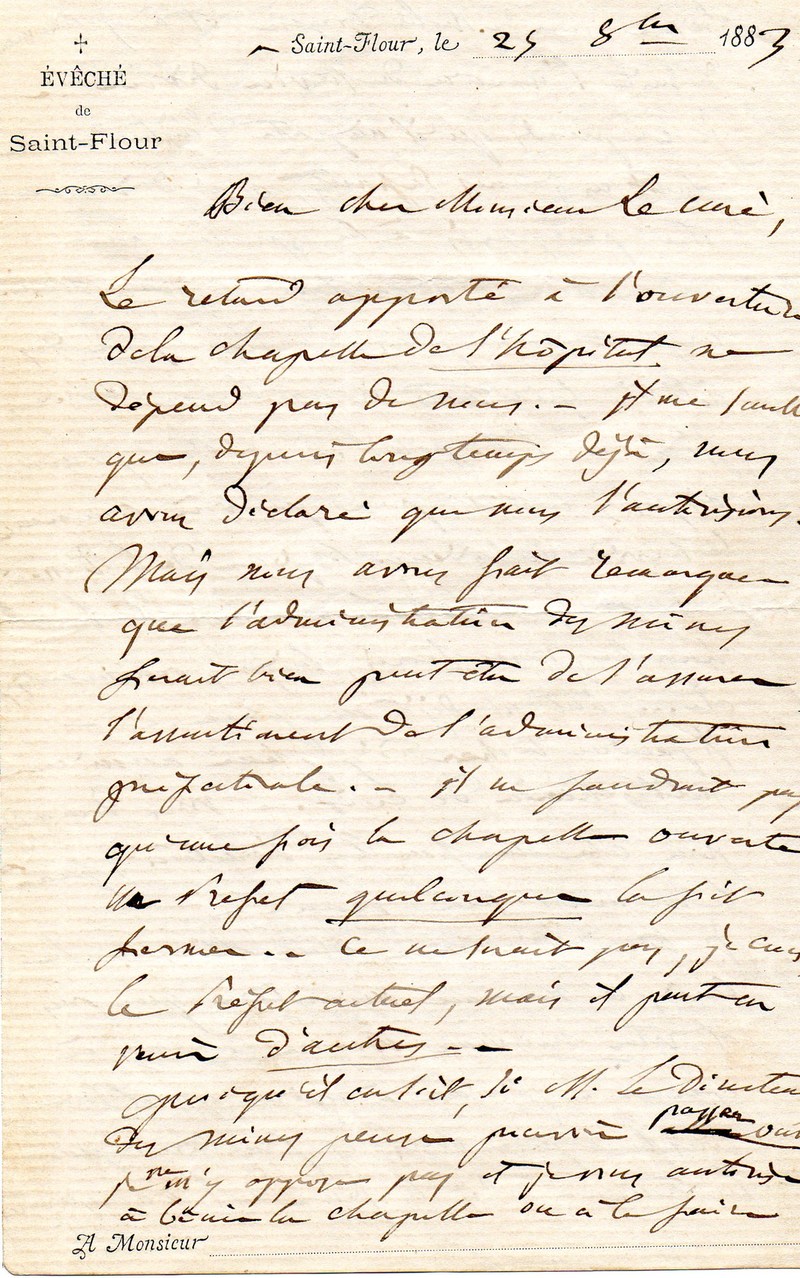 ✝
ÉVÊCHÉ
de
Saint-Flour
Saint-Flour, le 25 8bre 1883
Bien cher Monsieur le curé,
Le retard apporté à l'ouverture
de la chapelle de l'hôpital ne
dépend pas de nous. – il me semble
que, depuis longtemps déjà, nous
avons déclaré que nous l'autorisions.
Mais nous avons fait remarquer
que l'administration des mines
ferait bien peut être de s'assurer
l'assentiment de l'administration
préfectorale. – il ne faudrait pas
qu'une fois la chapelle ouverte
un Préfet quelconque la fit
fermer. – Ce ne serait pas, je crois
le Préfet actuel, mais il peut en
venir d'autres –
quoiqu'il en soit, si M. le Directeur
des mines pense pouvoir passer outre
je ne m'y oppose pas et je vous autorise
à bénir la chapelle ou à la faire
A Monsieur